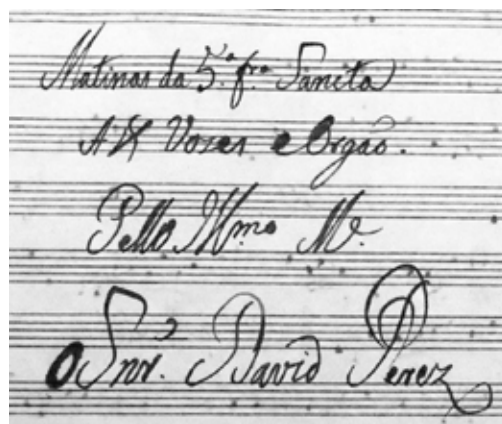 Matinas da 5.ª fr.ª Sancta
A 4 Vozes e Orgaõ.
Pello Ill.mo M.e
O Snr. David Perez